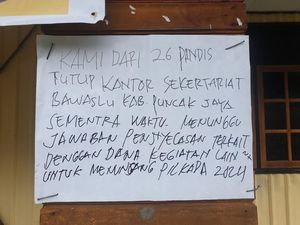 KAMI DARI 26 PANDIS
TUTUP KANTOR SEKERTARIAT
BAWASLU KAB. PUNCAK JAYA
SEMENTRA WAKTU MENUNGGU
JAWABAN PENJYECASAN TERKAIT
DENGGAN DANA KEGIATAN LAIN
UNTUK MENUNJANG PILKADA 2024